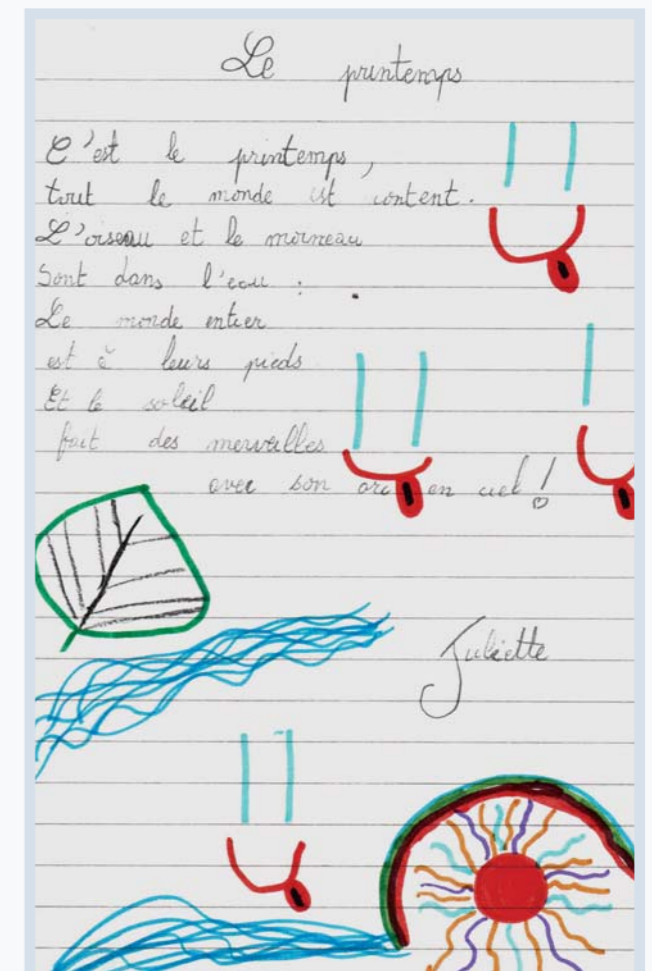 Le printemps
C'est le printemps,
tout le monde est content.
L'oiseau et le moineau
Sont dans l'eau.
Le monde entier
est à leurs pieds
Et le soleil
fait des merveilles
avec son arc en ciel !
Juliette